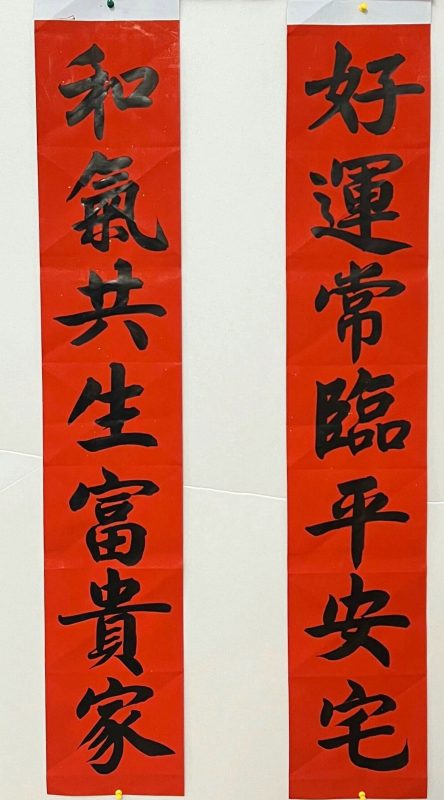 好運常臨平安宅
和氣共生富貴家